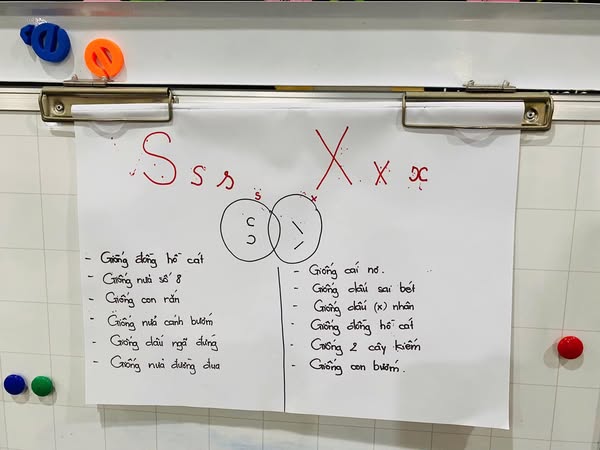 S s s X x x
s x
- Giống đồng hồ cát
- Giống nửa số 8
- Giống con rắn
- Giống nửa cánh bướm
- Giống dấu ngã đứng
- Giống nửa đường đua
- Giống cái nơ.
- Giống dấu sai bét
- Giống dấu (x) nhân
- Giống đồng hồ cát
- Giống 2 cây kiếm
- Giống con bướm.